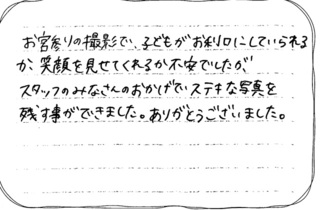 お宮参りの撮影で、子どもがお利口にしていられる
か、笑顔を見せてくれるか不安でしたが、
スタッフのみなさんのおかげでステキな写真を
残す事ができました。ありがとうございました。